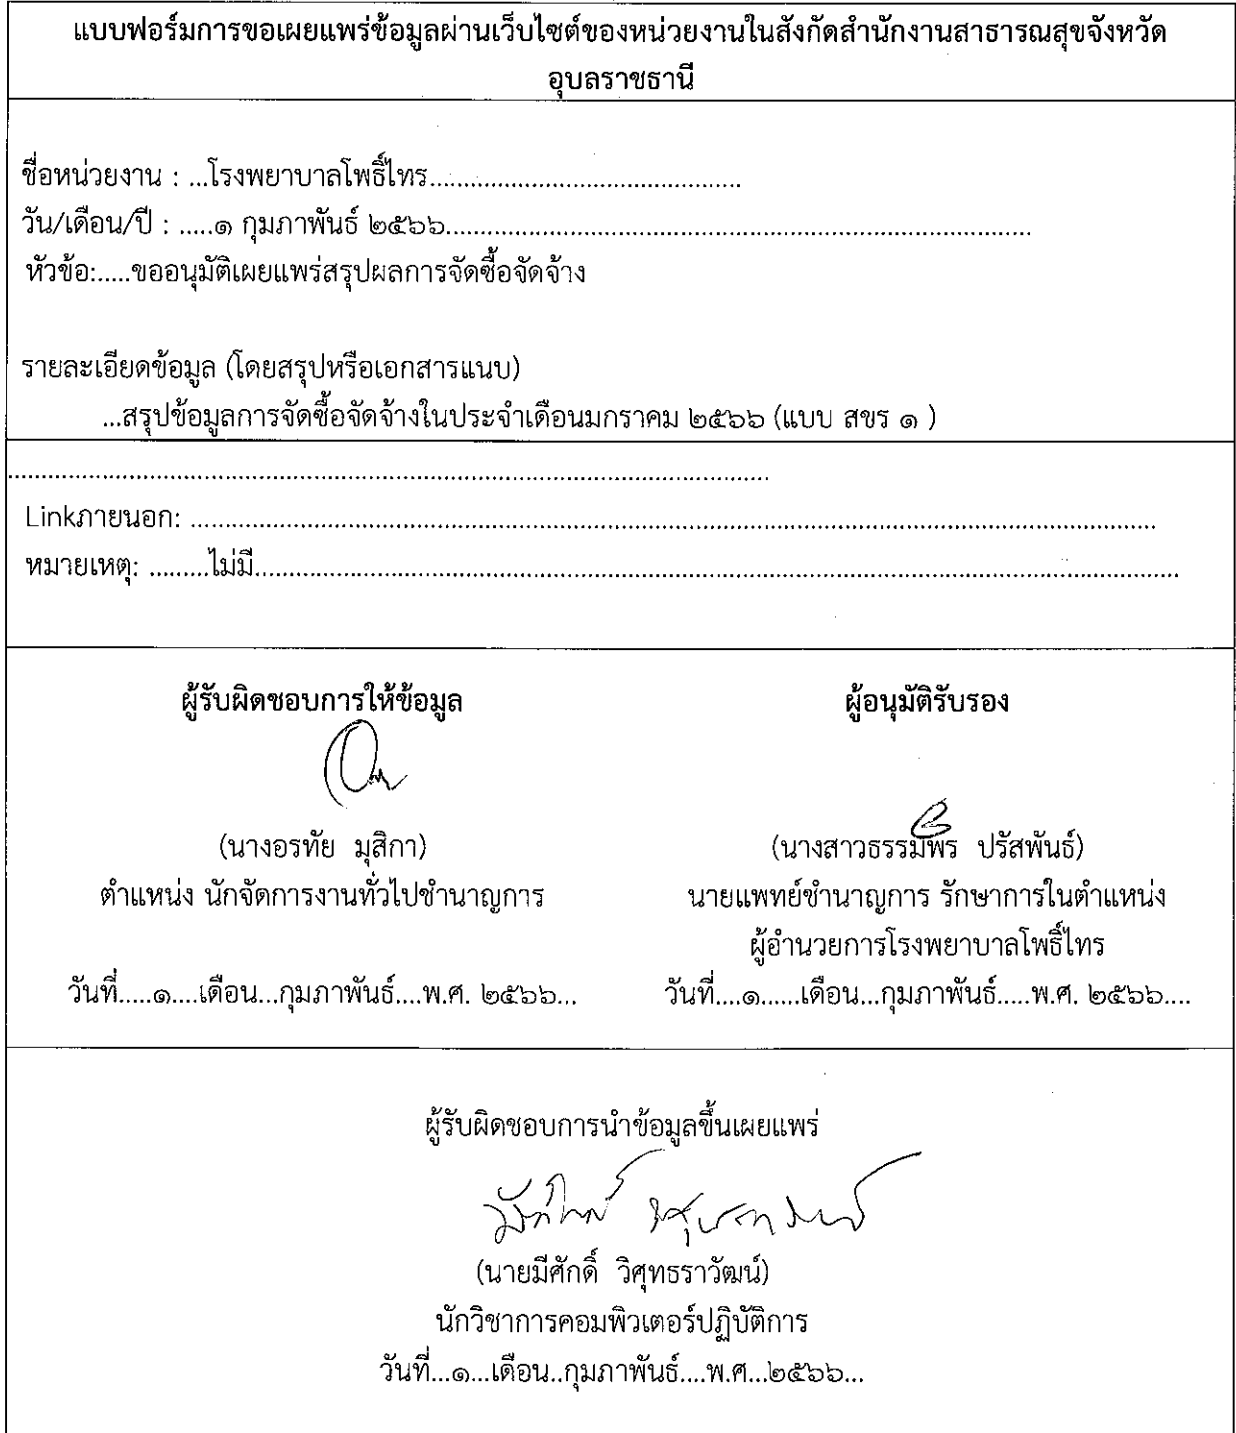 แบบฟอร์มการขอเผยแพร่ข้อมูลผ่านเว็บไซต์ของหน่วยงานในสังกัดสำนักงานสาธารณสุขจังหวัด
อุบลราชธานี
ชื่อหน่วยงาน : ...โรงพยาบาลโพธิ์ไทร..........................................
วัน/เดือน/ปี : .....๑ กุมภาพันธ์ ๒๕๖๖...............................................................................
หัวข้อ:.....ขออนุมัติเผยแพร่สรุปผลการจัดซื้อจัดจ้าง
รายละเอียดข้อมูล (โดยสรุปหรือเอกสารแนบ)
...สรุปข้อมูลการจัดซื้อจัดจ้างในประจำเดือนมกราคม ๒๕๖๖ (แบบ สขร ๑ )
.......................................................................................................
Linkภายนอก: ...................................................................................................................................
หมายเหตุ: .........ไม่มี.............................................................................................................................
ผู้รับผิดชอบการให้ข้อมูล ผู้อนุมัติรับรอง
(นางอรทัย มุสิกา) (นางสาวธรรมพร ปรัสพันธ์)
ตำแหน่ง นักจัดการงานทั่วไปชำนาญการ นายแพทย์ชำนาญการ รักษาการในตำแหน่ง
ผู้อำนวยการโรงพยาบาลโพธิ์ไทร
วันที่.....๑....เดือน...กุมภาพันธ์....พ.ศ. ๒๕๖๖... วันที่....๑......เดือน...กุมภาพันธ์.....พ.ศ. ๒๕๖๖....
ผู้รับผิดชอบการนำข้อมูลขึ้นเผยแพร่
(นายมีศักดิ์ วิศุทธราวัฒน์)
นักวิชาการคอมพิวเตอร์ปฏิบัติการ
วันที่...๑...เดือน..กุมภาพันธ์....พ.ศ...๒๕๖๖...